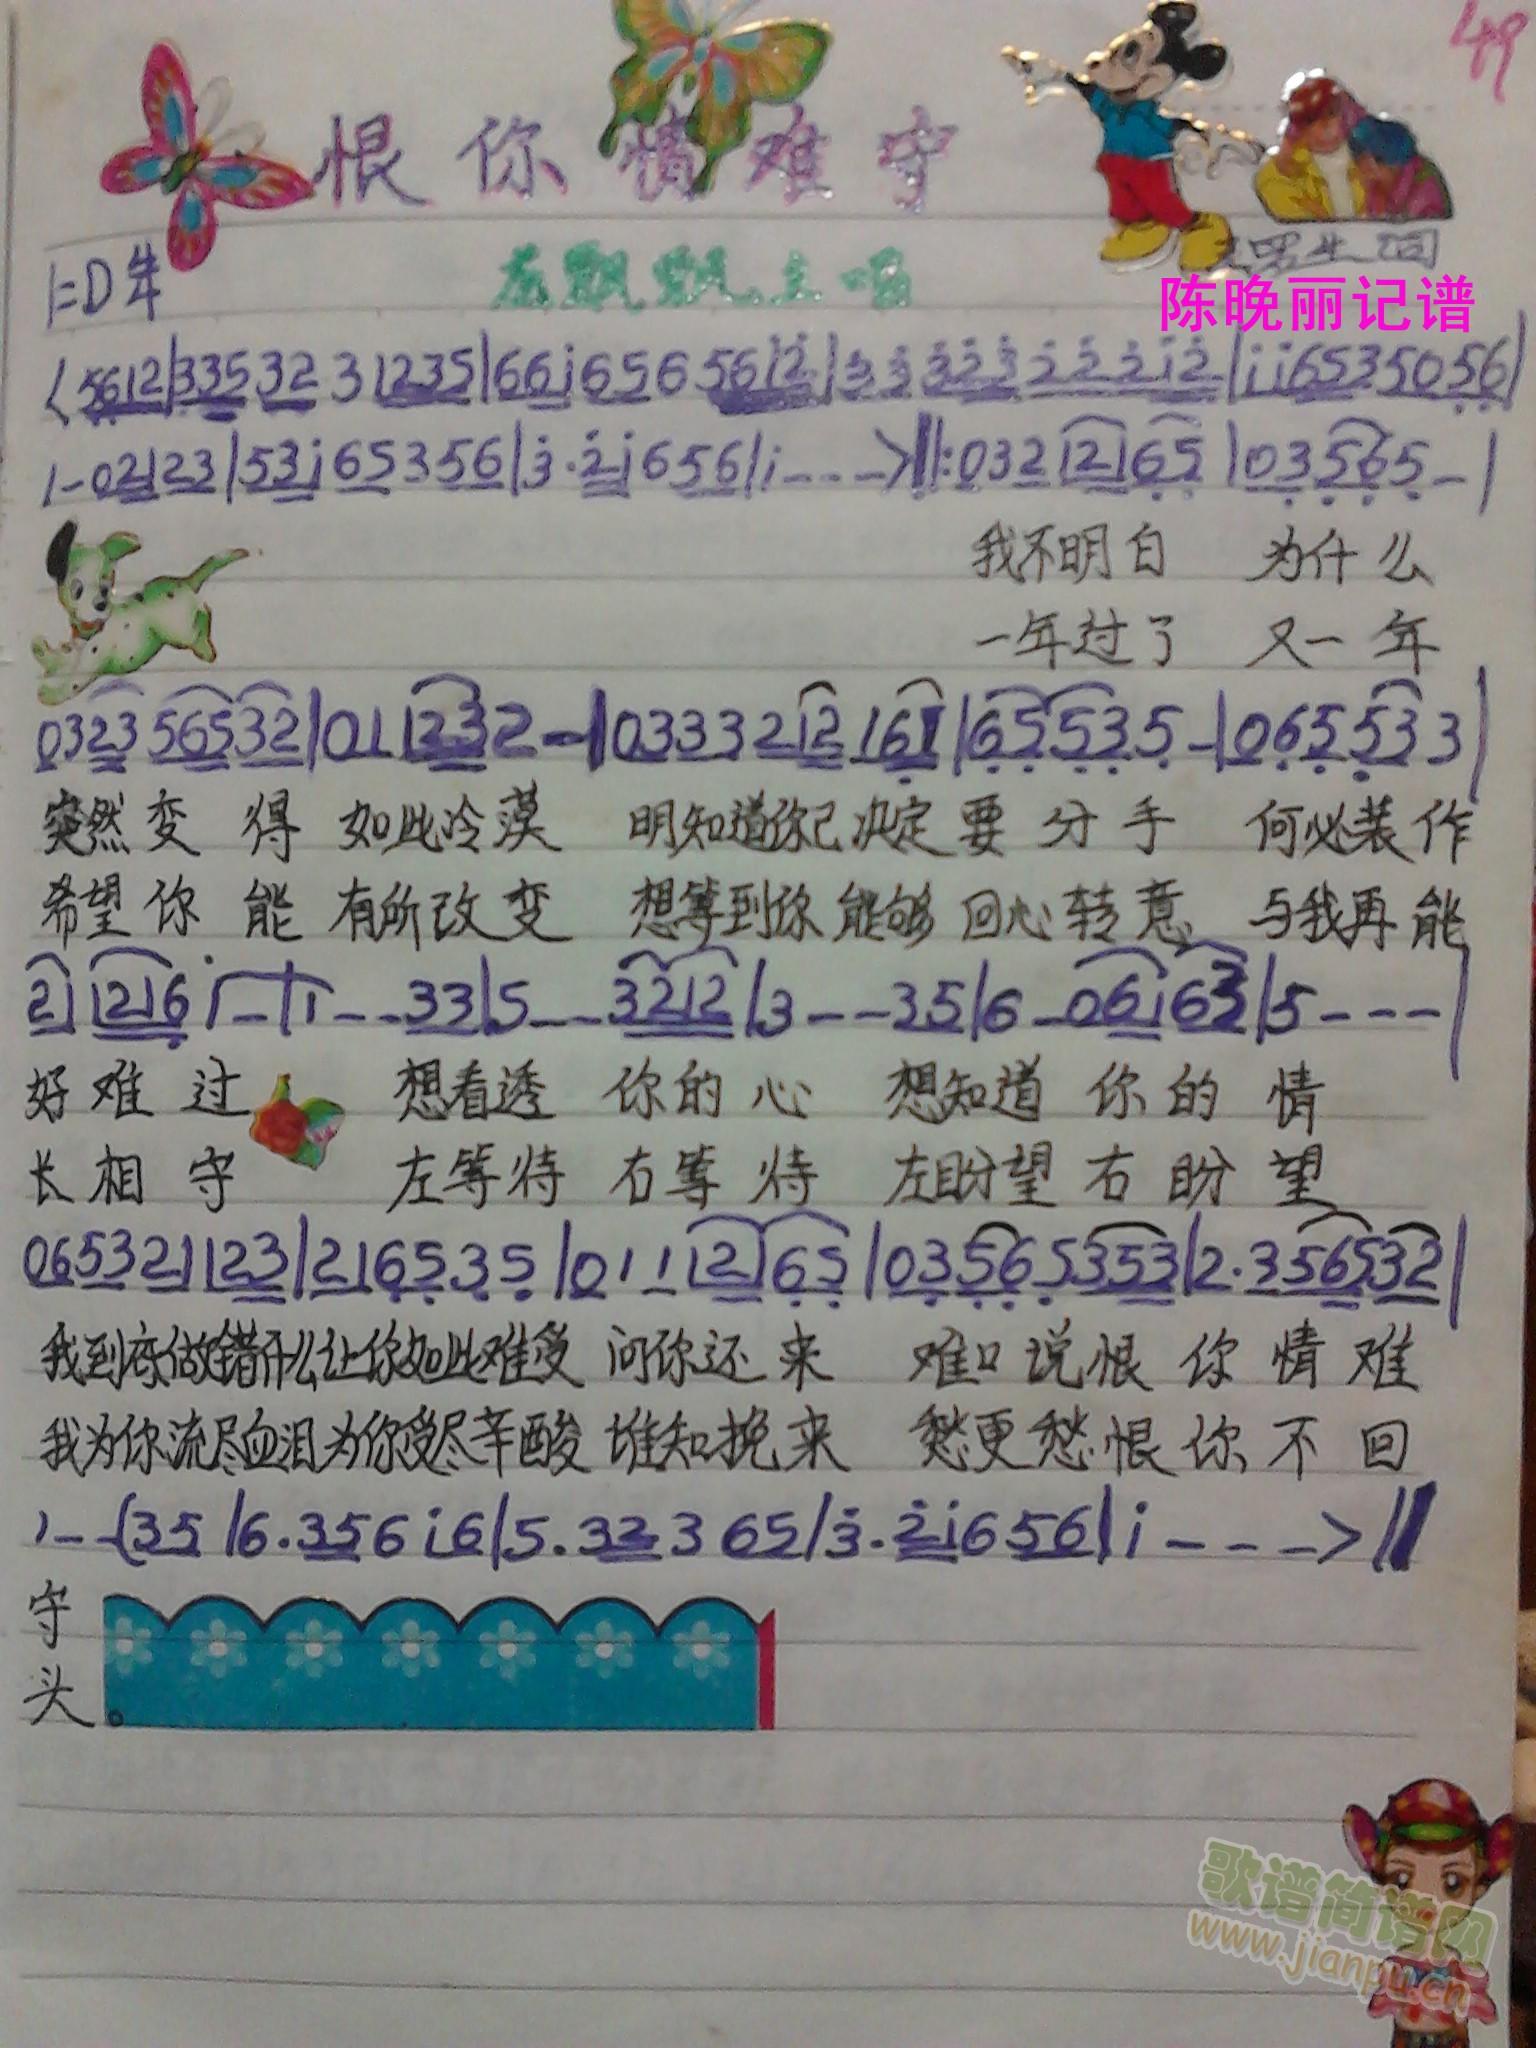 49
恨你情难守
1=D 4/4
飘飘主唱
陈晚丽记谱
(5612|33532 3 1235|66i656 5612|33323 22212|ii65350 56|
1-02123|53i 65356|3·2i656|i---)‖:032 12165|03565-|
我不明白 为什么
一年过了 又一年
0323 56532|01 1232-|03332 12 161|65535-|065533|
突然变得如此冷漠 明知道你已决定要分手 何必装作
希望你能有所改变 想等到你能够回心转意 与我再能
21 1216 i-|i--33|5--3212|3--35|6-06i63|5---|
好难过 想看透你的心 想知道你的情
长相守 左等待右等待 左盼望右盼望
0653211123|216535|01112165|03565353|2·356532|
我到底做错什么让你如此难受 问你还来 难口说恨你情难
我为你流尽血泪为你受尽辛酸 谁知挽来 愁更愁恨你不回
1--(35|6·356i6|5·32365|3·2i656|i---)‖
守
头。
歌谱简谱网
www.jianpu.cn